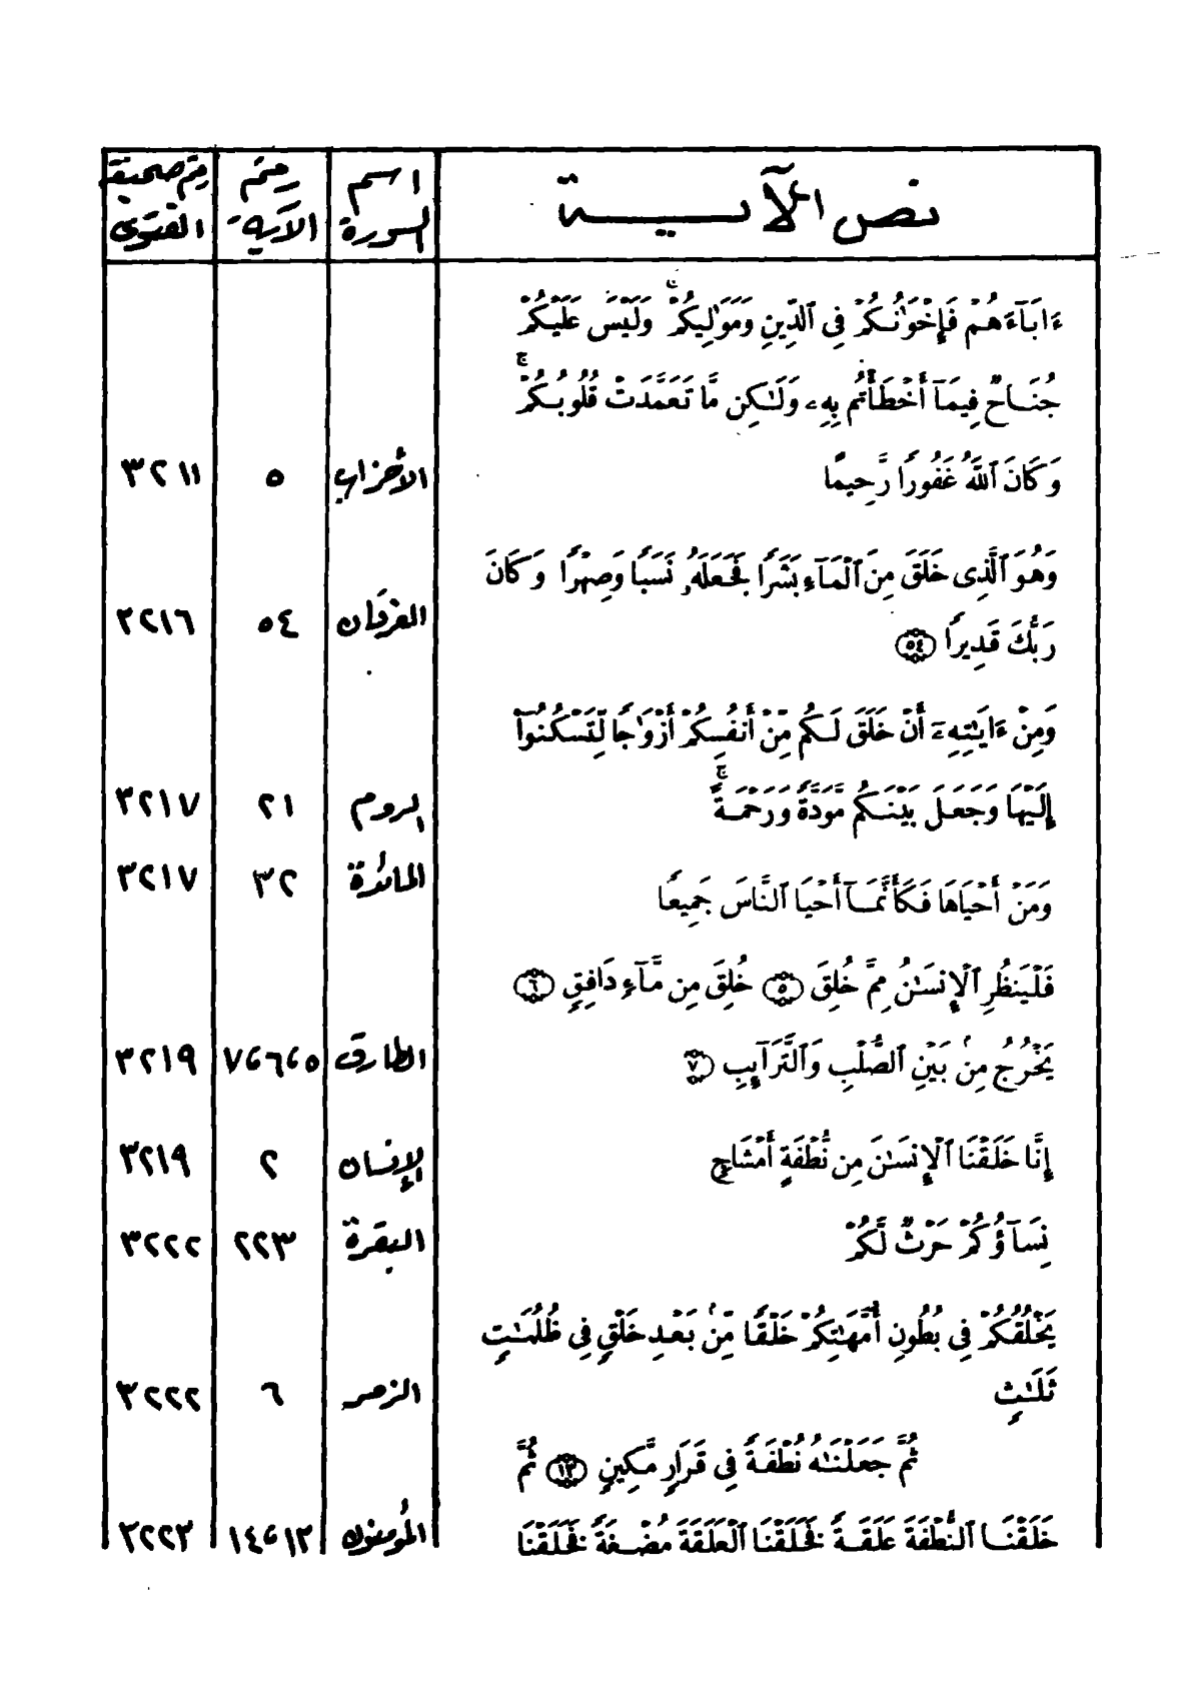 نص الآيـــة اسم رقم رقم صحيفة
السورة الآية الفتوى
ءَابَآءَهُمْ فَإِخْوَٰنُكُمْ فِى ٱلدِّينِ وَمَوَٰلِيكُمْ ۚ وَلَيْسَ عَلَيْكُمْ
جُنَاحٌ فِيمَآ أَخْطَأْتُم بِهِۦ وَلَٰكِن مَّا تَعَمَّدَتْ قُلُوبُكُمْ ۚ
وَكَانَ ٱللَّهُ غَفُورًا رَّحِيمًا الأحزاب ٥ ٣٢١١
وَهُوَ ٱلَّذِى خَلَقَ مِنَ ٱلْمَآءِ بَشَرًا فَجَعَلَهُۥ نَسَبًا وَصِهْرًا وَكَانَ
رَبُّكَ قَدِيرًا ٥٤ الفرقان ٥٤ ٣٢١٦
وَمِنْ ءَايَٰتِهِۦٓ أَنْ خَلَقَ لَكُم مِّنْ أَنفُسِكُمْ أَزْوَٰجًا لِّتَسْكُنُوٓا۟
إِلَيْهَا وَجَعَلَ بَيْنَكُم مَّوَدَّةً وَرَحْمَةً ۚ الروم ٢١ ٣٢١٧
وَمَنْ أَحْيَاهَا فَكَأَنَّمَآ أَحْيَا ٱلنَّاسَ جَمِيعًا المائدة ٣٢ ٣٢١٧
فَلْيَنظُرِ ٱلْإِنسَٰنُ مِمَّ خُلِقَ ٥ خُلِقَ مِن مَّآءٍ دَافِقٍ ٦
يَخْرُجُ مِنۢ بَيْنِ ٱلصُّلْبِ وَٱلتَّرَآئِبِ ٧ الطارق ٥،٦،٧ ٣٢١٩
إِنَّا خَلَقْنَا ٱلْإِنسَٰنَ مِن نُّطْفَةٍ أَمْشَاجٍ الإنسان ٢ ٣٢١٩
نِسَآؤُكُمْ حَرْثٌ لَّكُمْ البقرة ٢٢٣ ٣٢٢٢
يَخْلُقُكُمْ فِى بُطُونِ أُمَّهَٰتِكُمْ خَلْقًا مِّنۢ بَعْدِ خَلْقٍ فِى ظُلُمَٰتٍ
ثَلَٰثٍ الزمر ٦ ٣٢٢٢
ثُمَّ جَعَلْنَٰهُ نُطْفَةً فِى قَرَارٍ مَّكِينٍ ١٣ ثُمَّ
خَلَقْنَا ٱلنُّطْفَةَ عَلَقَةً فَخَلَقْنَا ٱلْعَلَقَةَ مُضْغَةً فَخَلَقْنَا المؤمنون ١٣،١٤ ٣٢٢٣